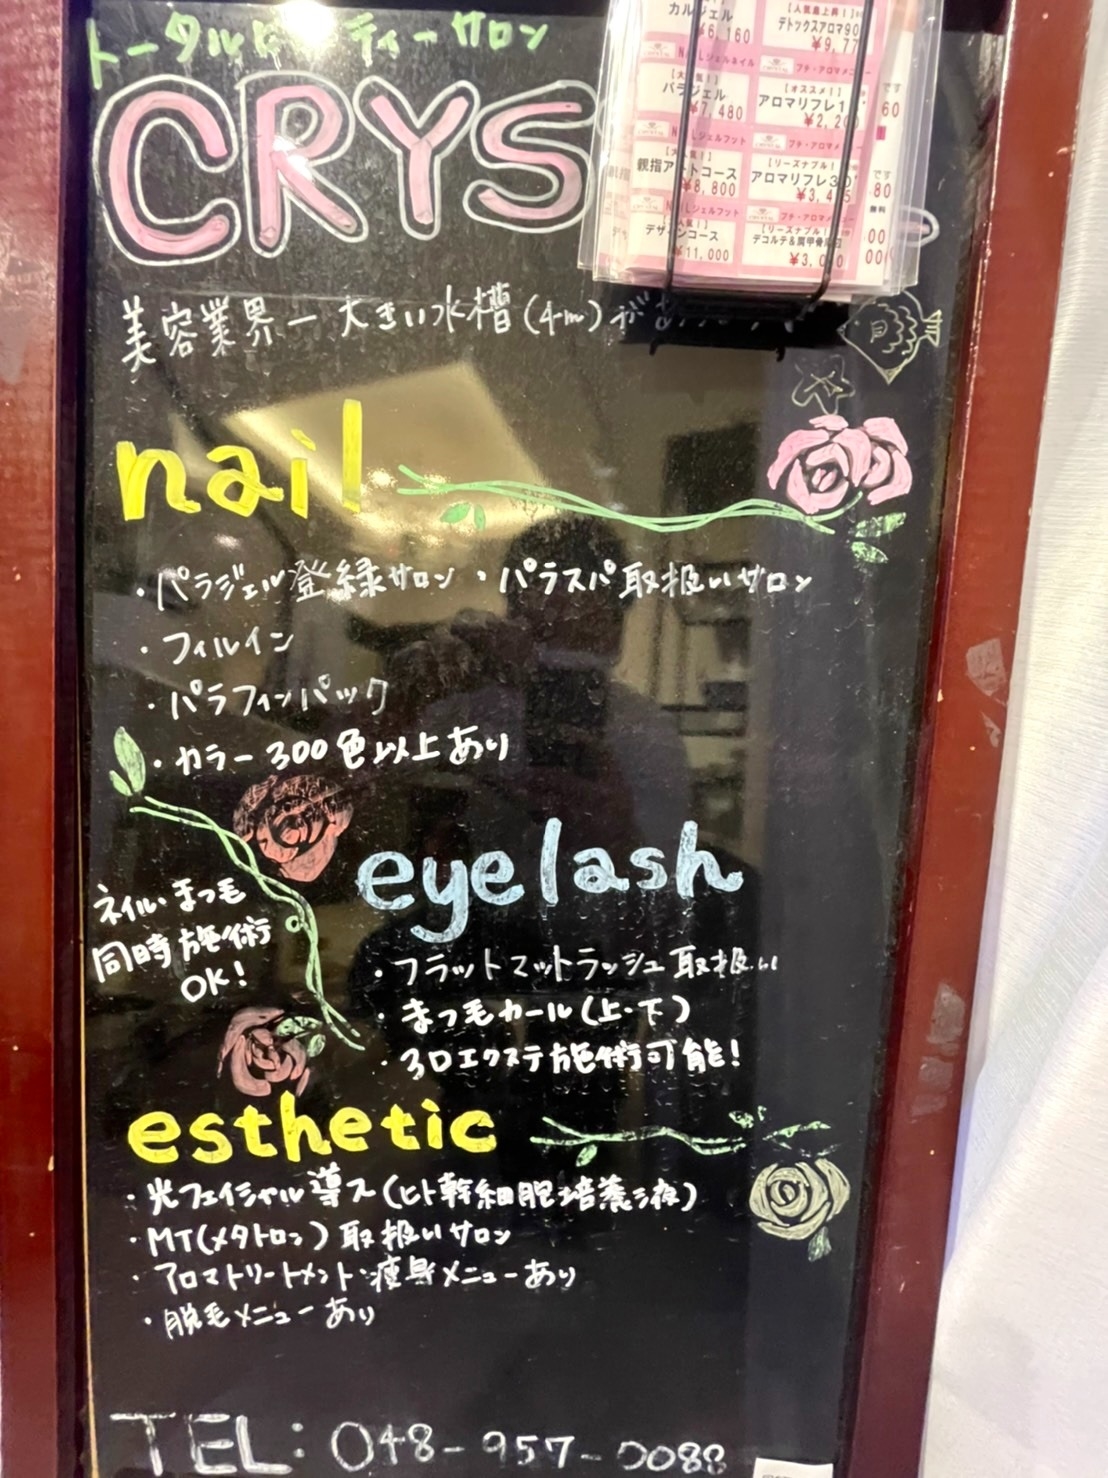 トータルビューティーサロン
CRYS
カルジェル
¥6,160
【人気急上昇！】
デトックスアロマ90
¥9,77
パラジェル
¥7,480
【オススメ！】
アロマリフレ1
¥2,20
親指アートコース
¥8,800
【リーズナブル！
アロマリフレ30
ジェルフット
デザインコース
¥11,000
【リーズナブル！】
デコルテ&肩甲骨
美容業界一大きい水槽(4m)が
nail
・パラジェル登録サロン ・パラスパ取扱いサロン
・フィルイン
・パラフィンパック
・カラー300色以上あり
ネイル・まつ毛
同時施術
OK!
eyelash
・フラットマットラッシュ取扱い
・まつ毛カール(上・下)
・3Dエクステ施術可能!
esthetic
・光フェイシャル導入(ヒト幹細胞培養液)
・MT(メタトロン)取扱いサロン
・アロマトリートメント・痩身メニューあり
・脱毛メニューあり
TEL:048-957-0088